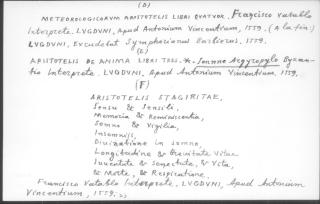 (D)
METEOROLOGICORVM ARISTOTELIS LIBRI QVATVOR, Francisco Vatablo
Interprete. LVGDVNI, Apud Antonium Vincentium, 1559. (A la fin:)
LVGDVNI, Excudebat Symphorianus Barbierus, 1559.
(E)
ARISTOTELIS DE ANIMA LIBRI TRES. Ioanne Argyropylo Byzan-
tio Interprete. LVGDVNI, Apud Antonium Vincentium, 1559.
(F)
ARISTOTELIS STAGIRITAE,
Sensu & Sensili,
Memoria & Reminiscentia,
Somno & Vigilia,
Insomnijs,
Diuinatione in somno,
Longitudine & Breuitate Vitae
Iuuentute & Senectute, & Vita,
& Morte, & Respiratione,
Francisco Vatablo Interprete. LVGDVNI, Apud Antonium
Vincentium, 1559.